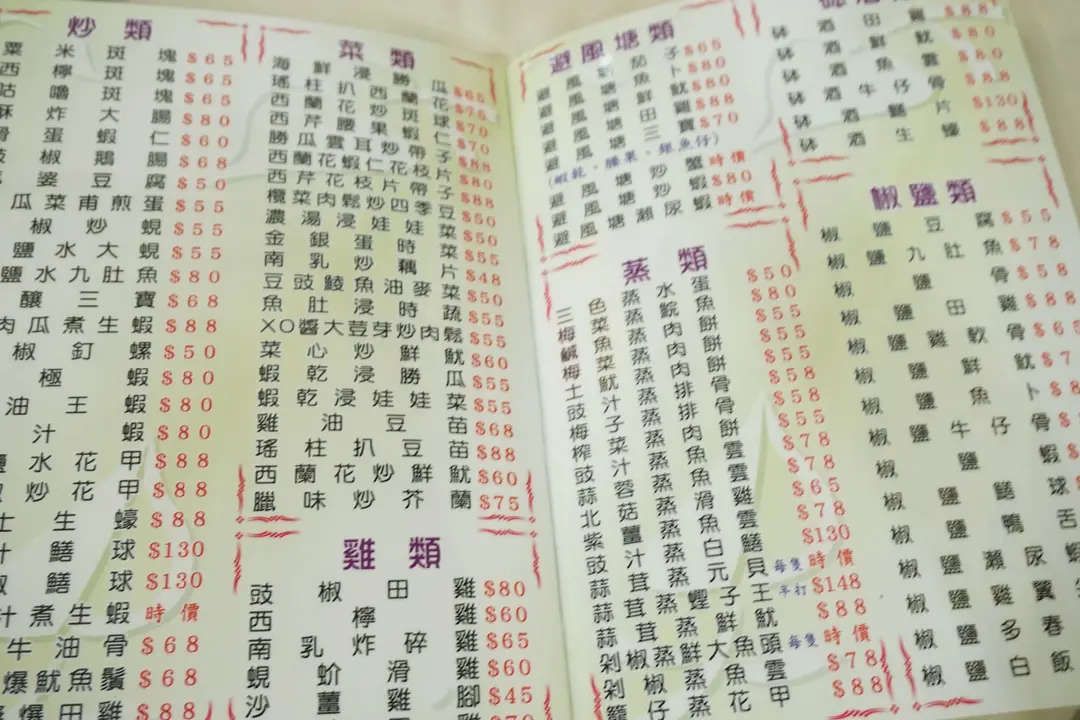 炒類
粟米斑塊 $65
西檸斑塊 $65
咕嚕斑塊 $65
酥炸大腸 $80
滑蛋蝦仁 $60
豉椒鵝腸 $68
麻婆豆腐 $50
瓜菜甫煎蛋 $55
椒炒蜆 $55
鹽水大蜆 $55
鹽水九肚魚 $80
釀三寶 $68
肉瓜煮生蝦 $88
椒釘螺 $50
極蝦 $80
油王蝦 $80
汁蝦 $80
鹽水花甲 $88
炒花甲 $88
士生蠔 $88
汁鱔球 $130
椒鱔球 $130
汁煮生蝦 時價
牛油骨 $68
爆魷魚鬚 $68
爆田雞 $88
菜類
海鮮浸勝瓜 $65
瑤柱扒西蘭花 $75
西蘭花炒斑球 $70
西芹腰果蝦仁 $70
勝瓜雲耳炒帶子 $88
西蘭花蝦仁花枝片 $80
西芹花枝片帶子 $88
欖菜肉鬆炒四季豆 $50
濃湯浸娃娃菜 $50
金銀蛋時菜 $55
南乳炒藕片 $48
豆豉鯪魚油麥菜 $50
魚肚浸時蔬 $55
XO醬大荳芽炒肉鬆 $55
菜心炒鮮魷 $60
蝦乾浸勝瓜 $55
蝦乾浸娃娃菜 $55
雞油豆苗 $68
瑤柱扒豆苗 $88
西蘭花炒鮮魷 $60
臘味炒芥蘭 $75
雞類
豉椒田雞 $80
西檸雞 $60
南乳炸碎雞 $65
蜆蚧滑雞 $60
沙薑雞腳 $45
避風塘類
避風塘茄子 $65
避風塘魚卜 $80
避風塘鮮魷 $80
避風塘田雞 $88
避風塘三寶 $70
(蝦乾、腰果、銀魚仔)
避風塘炒蟹 時價
避風塘炒蝦 $80
避風塘瀨尿蝦 時價
蒸類
三色蒸水蛋 $50
梅菜蒸鯇魚 $80
鹹魚蒸肉餅 $55
梅菜蒸肉餅 $55
土魷蒸肉餅 $55
豉汁蒸排骨 $58
梅子蒸排骨 $58
榨菜蒸肉餅 $55
豉汁蒸魚雲 $78
蒜蓉蒸魚雲 $78
北菇蒸滑雞 $65
紫薑蒸魚雲 $78
豉汁蒸白鱔 $130
蒜茸蒸元貝 每隻 時價
蒜茸蒸蟶子王 半打 $148
蒜茸蒸鮮魷 $88
剁椒蒸大魚頭 每隻 時價
剁椒蒸魚雲 $78
籠仔蒸花甲 $88
砵酒類
砵酒田雞 $88
砵酒鮮魷 $80
砵酒魚雲 $80
砵酒牛仔骨 $88
砵酒鱔片 $130
砵酒生蠔 $88
椒鹽類
椒鹽豆腐 $55
椒鹽九肚魚 $78
椒鹽骨 $58
椒鹽田雞 $88
椒鹽雞軟骨 $65
椒鹽鮮魷 $7
椒鹽魚卜 $8
椒鹽牛仔骨 $
椒鹽蝦 $
椒鹽鱔球
椒鹽鴨舌
椒鹽瀨尿蝦
椒鹽雞翼
椒鹽多春
椒鹽白飯